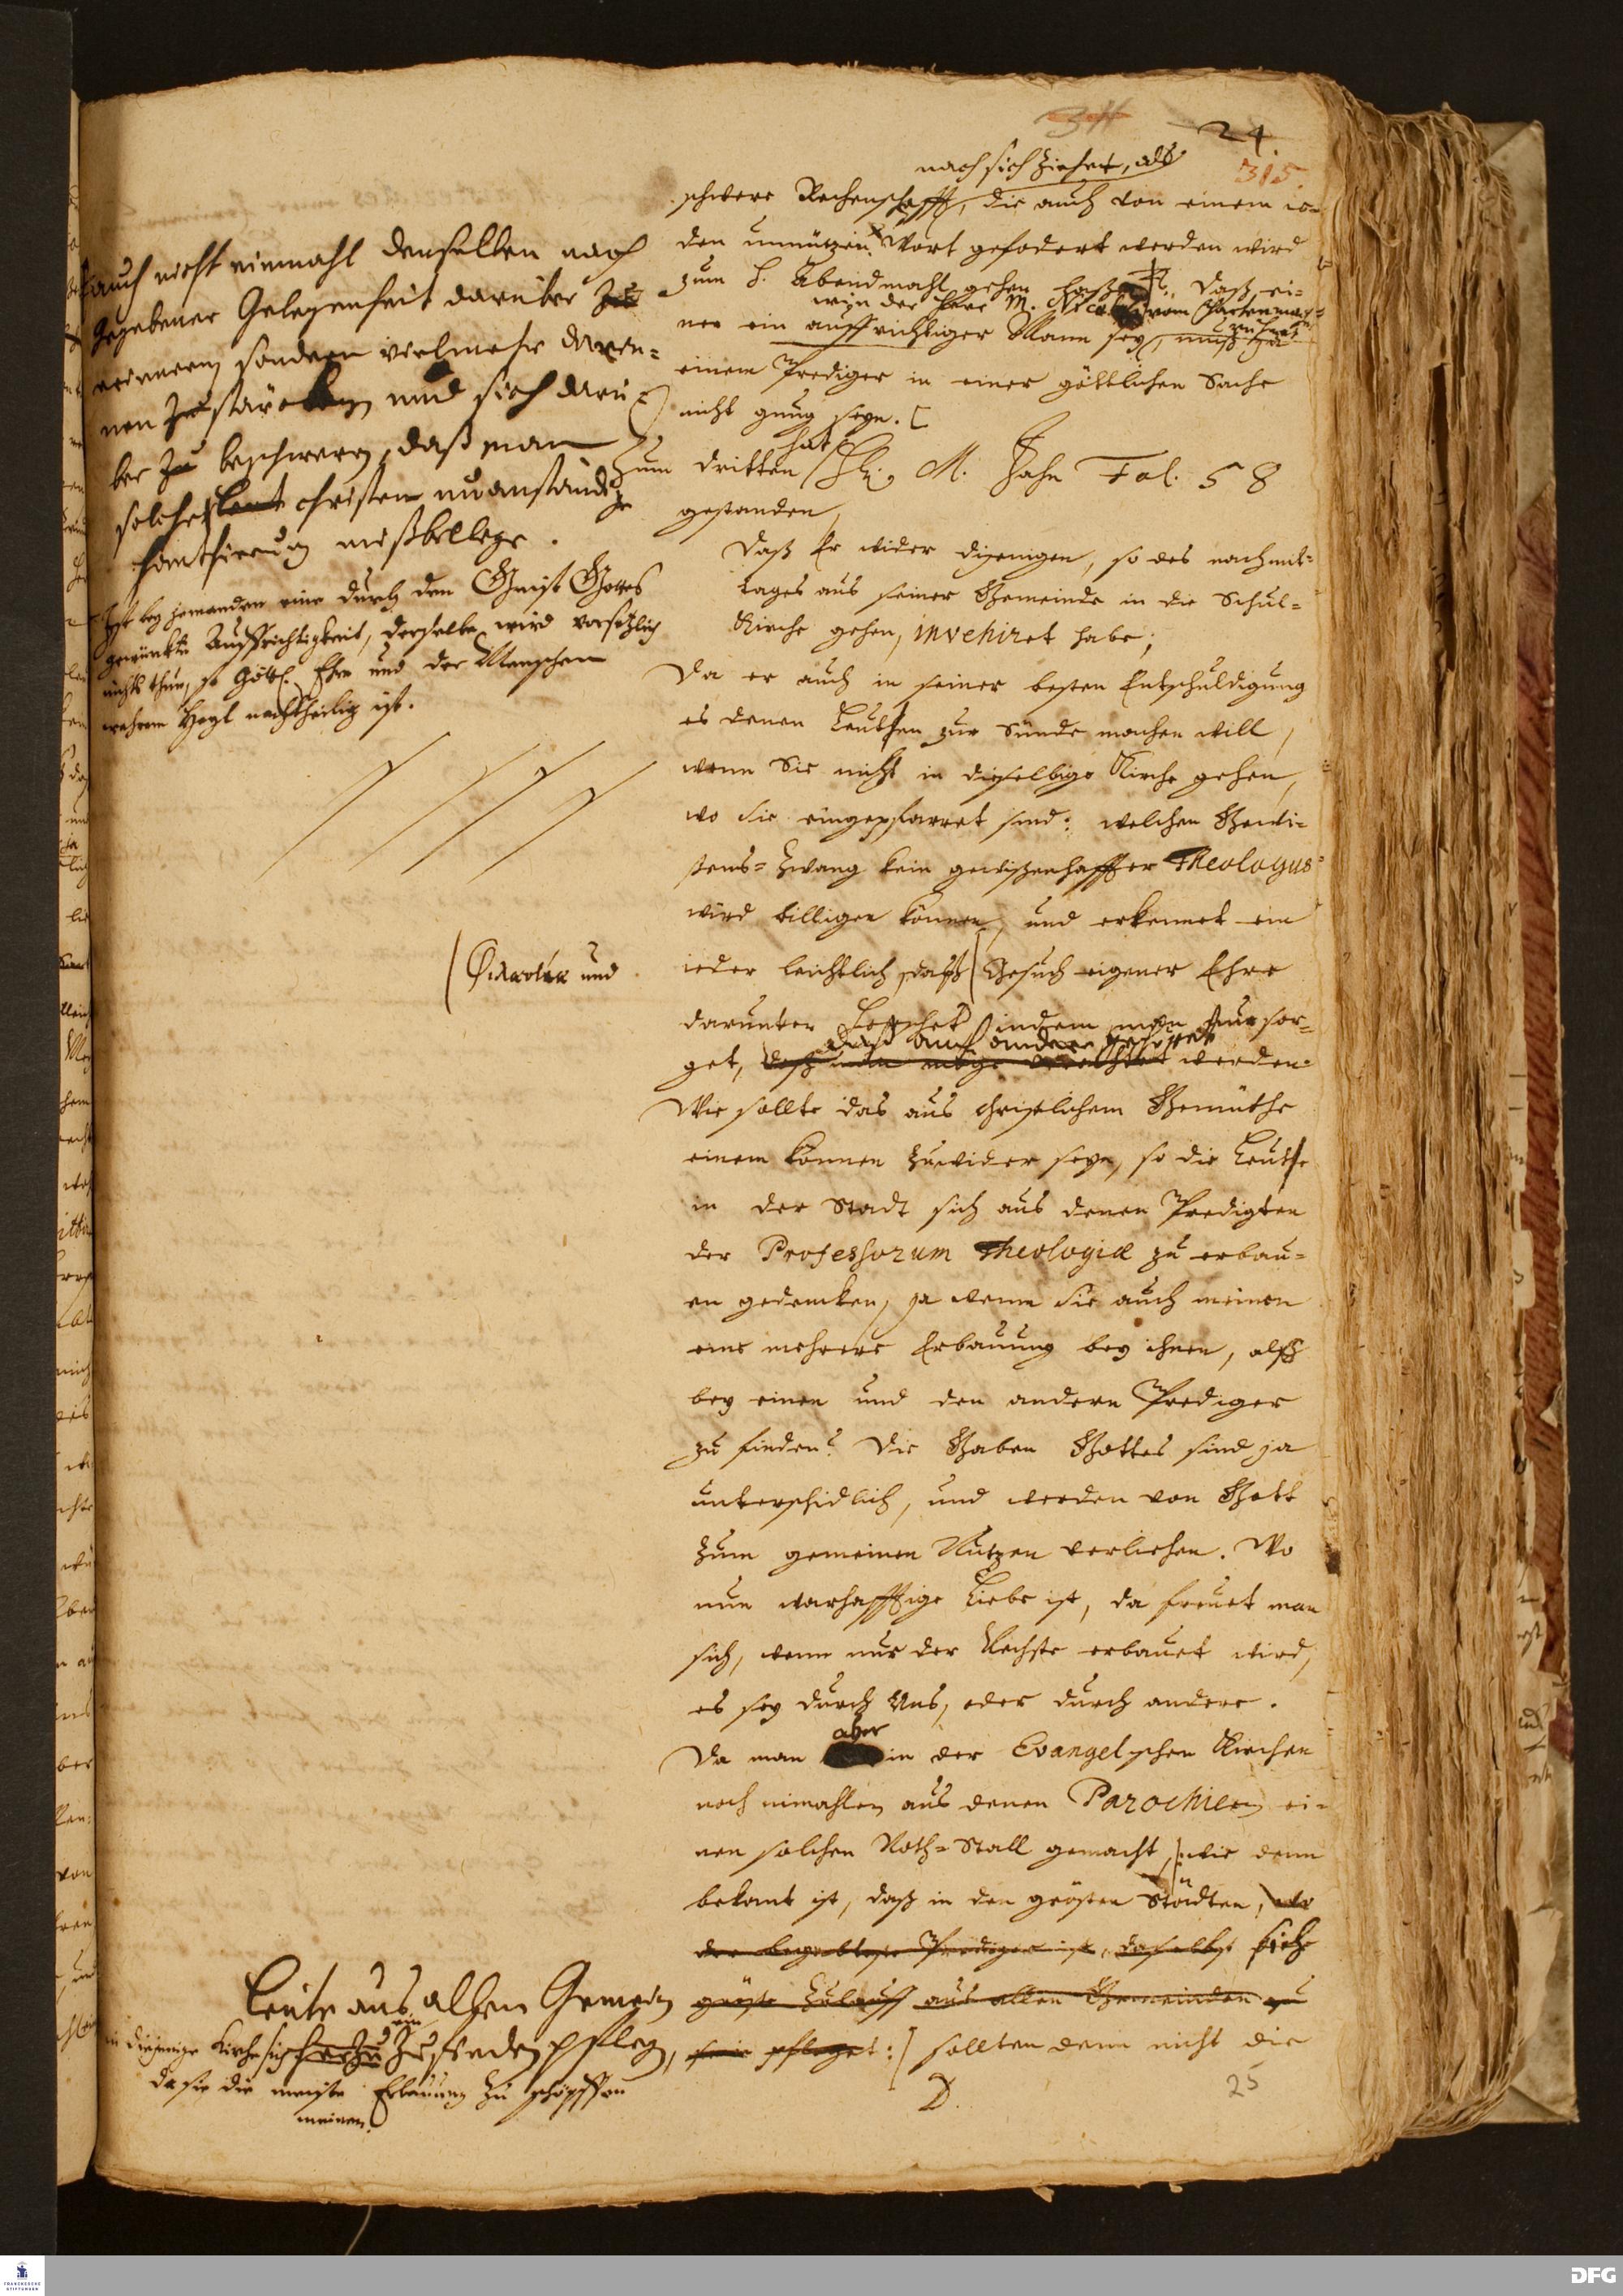 24
315
nach sich ziehet, als
schwere Rechenschafft, die auch von einem ie-
den unnützen Wort gefodert werden wird
zum h. Abendmahl gehen daß ei-
wie der Herr M.
ner ein auffrichtiger Mann sey, muß ja
einem Prediger in einer göttlichen Sache
nicht gnug seyn. [
hat
Zum dritten H. M. Jahn Fol. 58
gestanden,
Daß Er wider diejenigen, so des nachmit-
tages aus seiner Gemeinde in die Schul-
Kirche gehen, invehiret habe;
Da er auch in seiner besten Entschuldigung
es denen Leuthen zur Sünde machen will,
wenn Sie nicht in dieselbige Kirche gehen,
wo sie eingepfarret sind: welchen Gewi-
ßens-Zwang kein gewißenhaffter Theologus
wird billigen können, und erkennet ein
ieder leichtlich, daß Gesuch eigener Ehre
darunter indem man nur sor-
daß auch andere gehöret
get, daß man möge werden.
Wie sollte das aus christlichem Gemüthe
einem können zuwider seyn, so die Leuthe
in der Stadt sich aus denen Predigten
der Professorum Theologiæ zu erbau-
en gedencken, ja wenn sie auch meinen
eine mehrere Erbauung bey ihnen, alß
bey einen und den andern Prediger
zu finden? Die Gaben Gottes sind ja
unterschidlich, und werden von Gott
zum gemeinen Nutzen verliehen. Wo
nun warhafftige Liebe ist, da freuet man
sich, wenn nur der Nechste erbauet wird,
es sey durch Uns, oder durch andere.
aber
Da man in der Evangelischen Kirchen
noch niemahlen aus denen Parochien ei-
nen solchen Noth-Stall gemacht, wie denn
bekant ist, daß in den grösten Städten, wo
der begabteste Prediger ist, daselbst
gröste Zulauff aus allen Gemeinden zu
sein pfleget:] sollten denn nicht die
D.
25
auch nicht einmahl denselben nach
gegebener Gelegenheit darüber zu
erinnern, sondern vielmehr darin-
nen zu stärcken und sich darü-
ber zu beschweren, daß man
solche Christen unanständige
handthierung mißbillige.
Ist bey jemanden eine durch den Geist Gottes
gewirckte Auffrichtigkeit, derselbe wird vorsetzlich
nichts thun, so Göttl. Ehre und der Menschen
wahrem Heyl nachtheilig ist.
und
Leute aus allen Gemein
in diejenige Kirche sich einzufinden pflegen,
da sie die meiste Erbauung zu schöpffen
meinen.
DFG